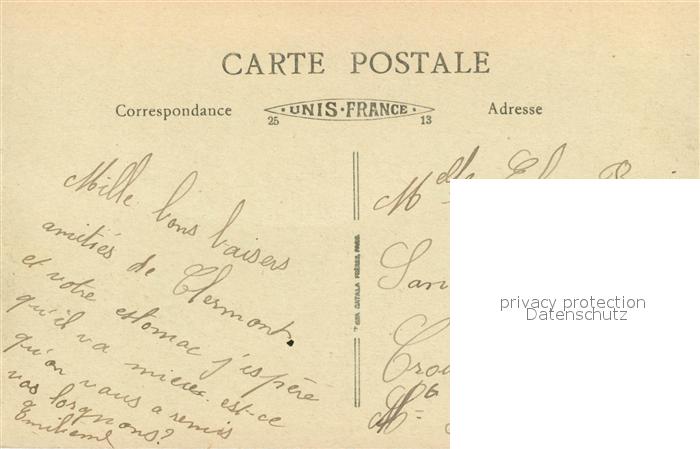 CARTE POSTALE
Correspondance
UNIS-FRANCE
25 13
Adresse
Mille bons baisers
amitiés de Clermont.
et votre estomac j'espère
qu'il va mieux. est-ce
qu'on vous a remis
vos lorgnons?
CATALA FRÈRES, PARIS
Melle
privacy protection
Datenschutz